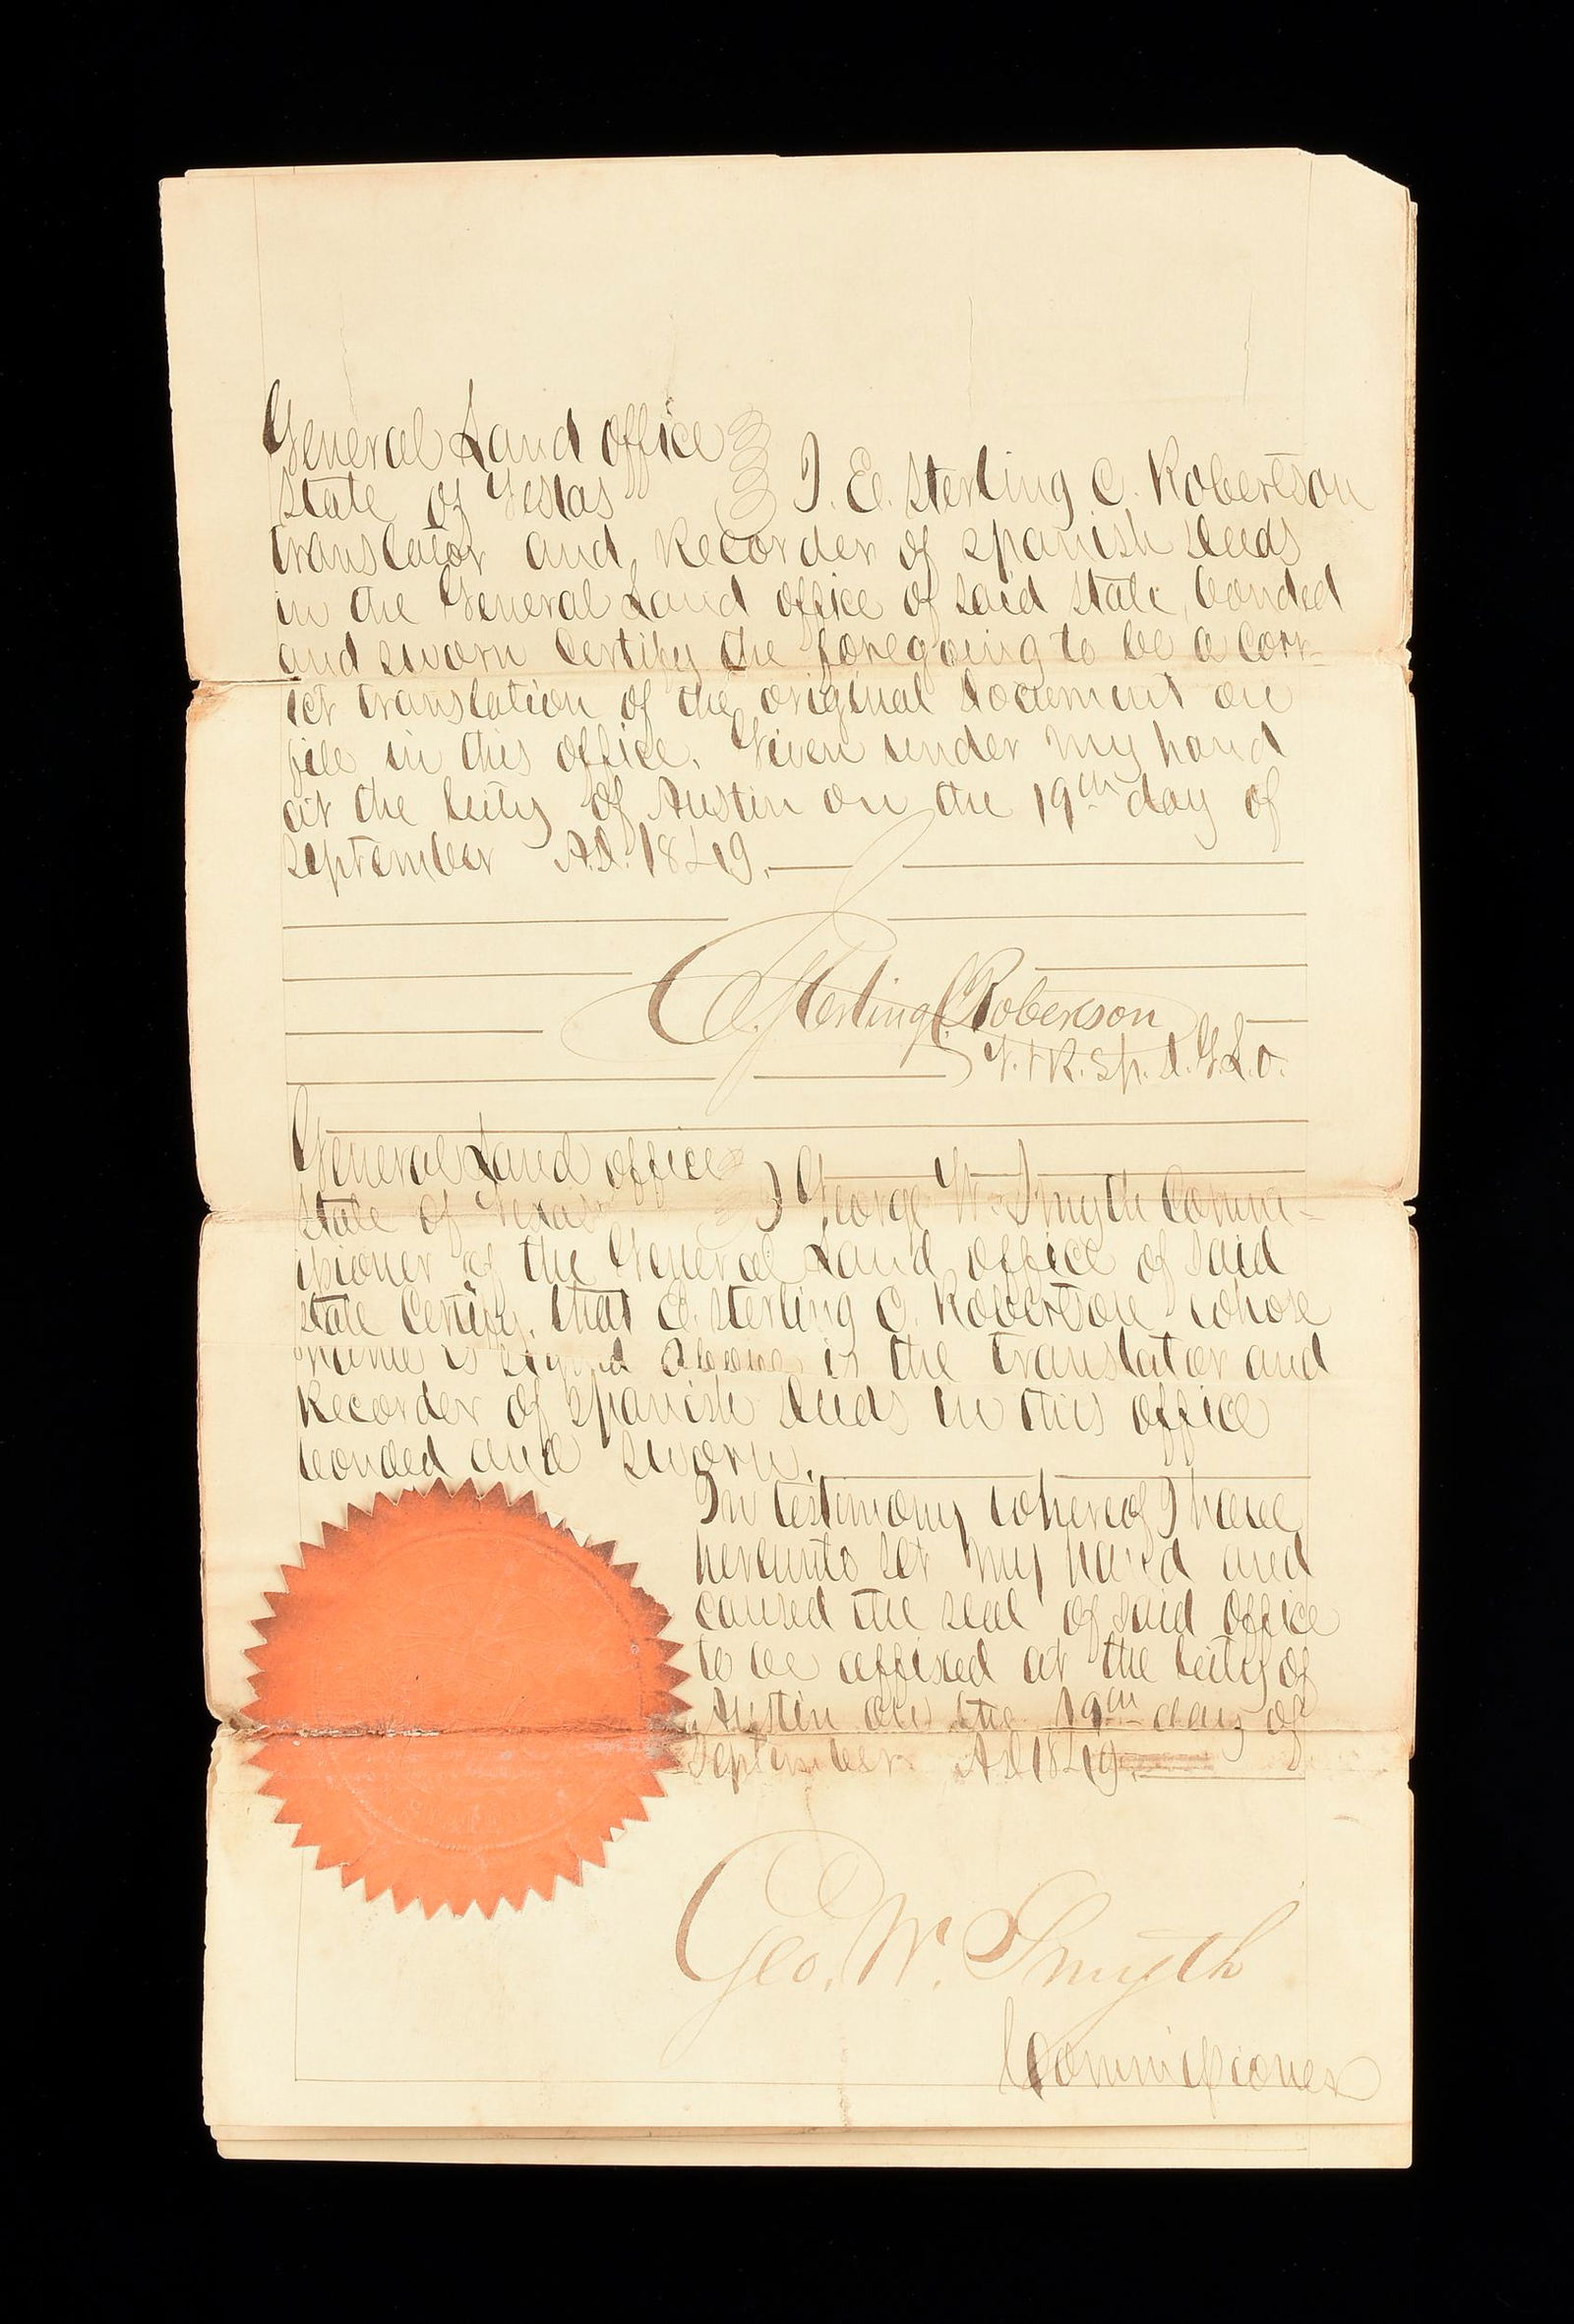 General Land office
State of Texas I. E. Sterling C. Robertson
translator and Recorder of Spanish deeds
in the General Land office of said state, bonded
and sworn certify the foregoing to be a corr-
ect translation of the original document on
file in this office. Given under my hand
at the City of Austin on the 19th day of
September A.D. 1849.
E. Sterling C. Robertson
T. & R. Sp. d. G.L.O.
General Land office
State of Texas I George W. Smyth Commi-
ssioner of the General Land office of said
state certify, that E. Sterling C. Robertson whose
name is signed above is the translator and
Recorder of Spanish deeds in this office
bonded and sworn.
In testimony whereof I have
hereunto set my hand and
caused the seal of said office
to be affixed at the City of
Austin on the 19th day of
September A.D. 1849.
Geo. W. Smyth
Commissioner